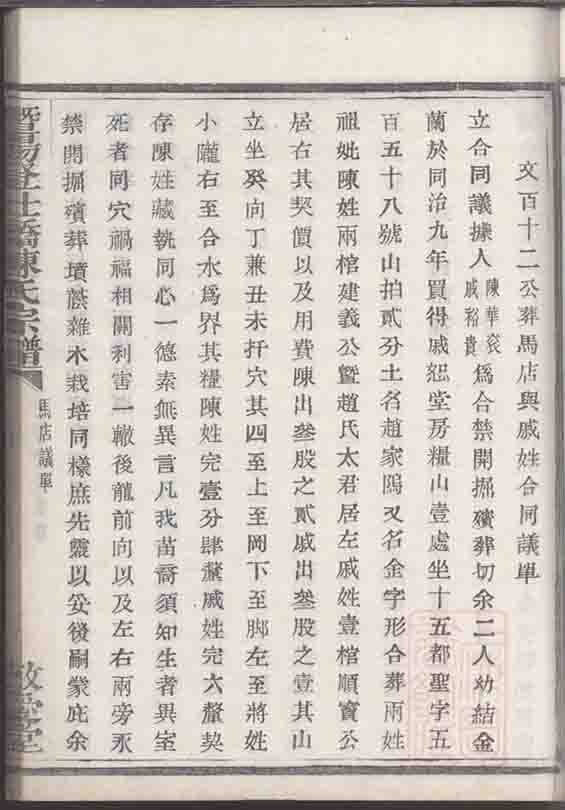 文百十二公葬馬店與戚姓合同議單
立合同議據人陳華袞戚裕貴爲合禁開掘殯葬切余二人幼結金
蘭於同治九年買得戚恕堂房糧山壹處坐十五都聖字五
百五十八號山拍貳分土名趙家隖又名金字形合葬兩姓
祖妣陳姓兩棺建義公曁趙氏太君居左戚姓壹棺順賓公
居右其契價以及用費陳出叄股之貳戚出叄股之壹其山
立坐癸向丁兼丑未扞穴其四至上至岡下至脚左至將姓
小隴右至合水爲界其糧陳姓完壹分肆釐戚姓完六釐契
存陳姓藏執同心一德素無異言凡我苗裔須知生者異室
死者同穴禍福相關利害一轍後龍前向以及左右兩旁永
禁開掘殯葬墳蔭雜木栽培同樣庶先靈以妥後嗣蒙庇余
暨陽登仕橋陳氏宗譜
馬店議單
敘堂